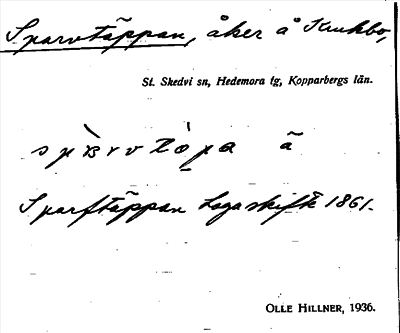 Sparvtäppan, åker å Krukbo,
St. Skedvi sn, Hedemora tg, Kopparbergs län.
Sparftäppan Lagaskifte 1861.
OLLE HILLNER, 1936.